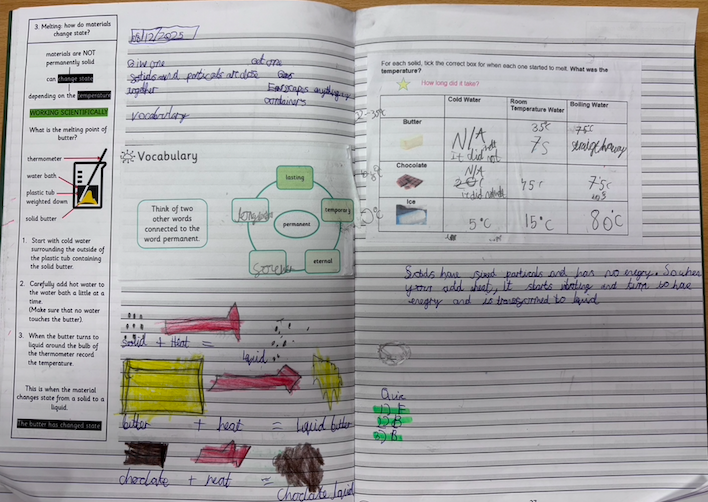 3. Melting: how do materials
change state?
materials are NOT
permanently solid
can change state
depending on the temperature
WORKING SCIENTIFICALLY
What is the melting point of
butter?
thermometer
water bath
plastic tub
weighted down
solid butter
1. Start with cold water
surrounding the outside of
the plastic tub containing
the solid butter.
2. Carefully add hot water to
the water bath a little at a
time.
(Make sure that no water
touches the butter).
3. When the butter turns to
liquid around the bulb of
the thermometer record
the temperature.
This is when the material
changes state from a solid to a
liquid.
The butter has changed state
/12/2025
Give one
Get one
Solids and particals are close
Gas
together
containers
Vocabulary
Vocabulary
lasting
Think of two
other words
connected to the
word permanent.
temporary
permanent
eternal
Solid + Heat =
liquid
butter + heat = Liquid butter
choclate + heat =
Choclate liquid
For each solid, tick the correct box for when each one started to melt. What was the
temperature?
How long did it take?
Cold Water
Room
Temperature Water
Boiling Water
Butter
N/A
It did not
35c
75
75c
Chocolate
N/A
it did
45c
75c
Ice
5°C
15°C
80°C
Solids have particals and has no enegry. So when
your add heat, it starts and turns to have
enegry and is to liquid
Quiz
1) E
2) B
3) B